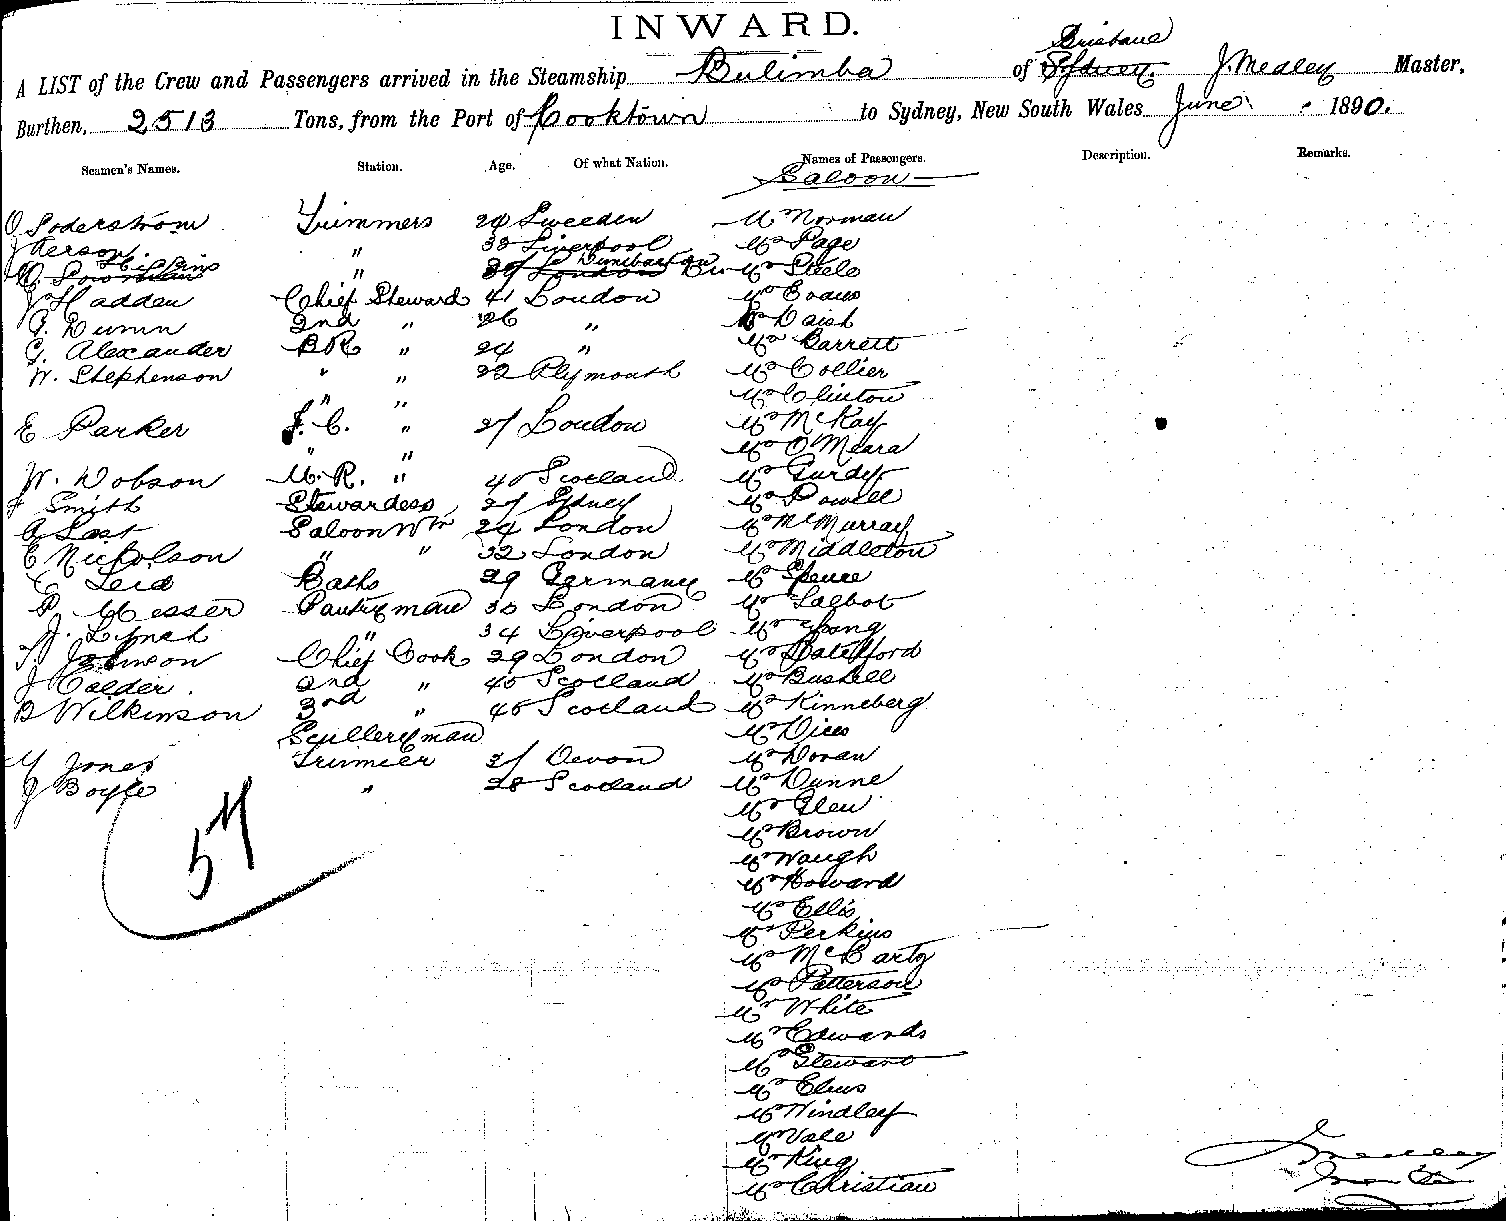 INWARD.
Brisbane
A LIST of the Crew and Passengers arrived in the Steamship Bulimba of Sydney. J. Medley Master,
Burthen, 2513 Tons, from the Port of Cooktown to Sydney, New South Wales June 1890.
Seamen's Names. Station. Age. Of what Nation. Names of Passengers. Description. Remarks.
Saloon
O Soderstrom Trimmers 24 Sweeden Mr Norman
J " 38 Liverpool Mr Page
" London Mr Steele
J Hadden Chief Steward 41 London Mr Evans
G. Dunn 2nd " 26 " Mr Daish
G. Alexander BR " 24 " Mr Barrett
W. Stephenson " " 22 Plymouth Mr Collier
" " Mr Clinton
E Parker F. C. " 27 London Mr McKay
" " Mr O'Meara
W. Dobson M. R. " 40 Scotland Mr Purdy
F Smith Stewardess 27 Sydney Mr Powell
A Last Saloon Wtr 24 London Mr McMurray
E Nicholson " " 32 London Mr Middleton
C Leid Baths 29 Germany Mr Spence
P. Messer Pantryman 30 London Mr Talbot
J. Lynch " 34 Liverpool Mr Young
Johnson Chief Cook 29 London Mr
J Calder. 2nd " 40 Scotland Mr Bushell
B Wilkinson 3rd " 40 Scotland Mr Kinneberg
Scullery man Mr Dice
Y Jones Trimmer 31 Devon Mr Doran
J Boyle " 28 Scotland Mr Dunne
57
Mr Glen
Mr Brown
Mr Waugh
Mr Howard
Mr Ellis
Mr Perkins
Mr McCarty
Mr Patterson
Mr White
Mr Edwards
Mr Stewart
Mr
Mr Windley
Mr Vale
Mr King
Mr Christian
J Medley
Master